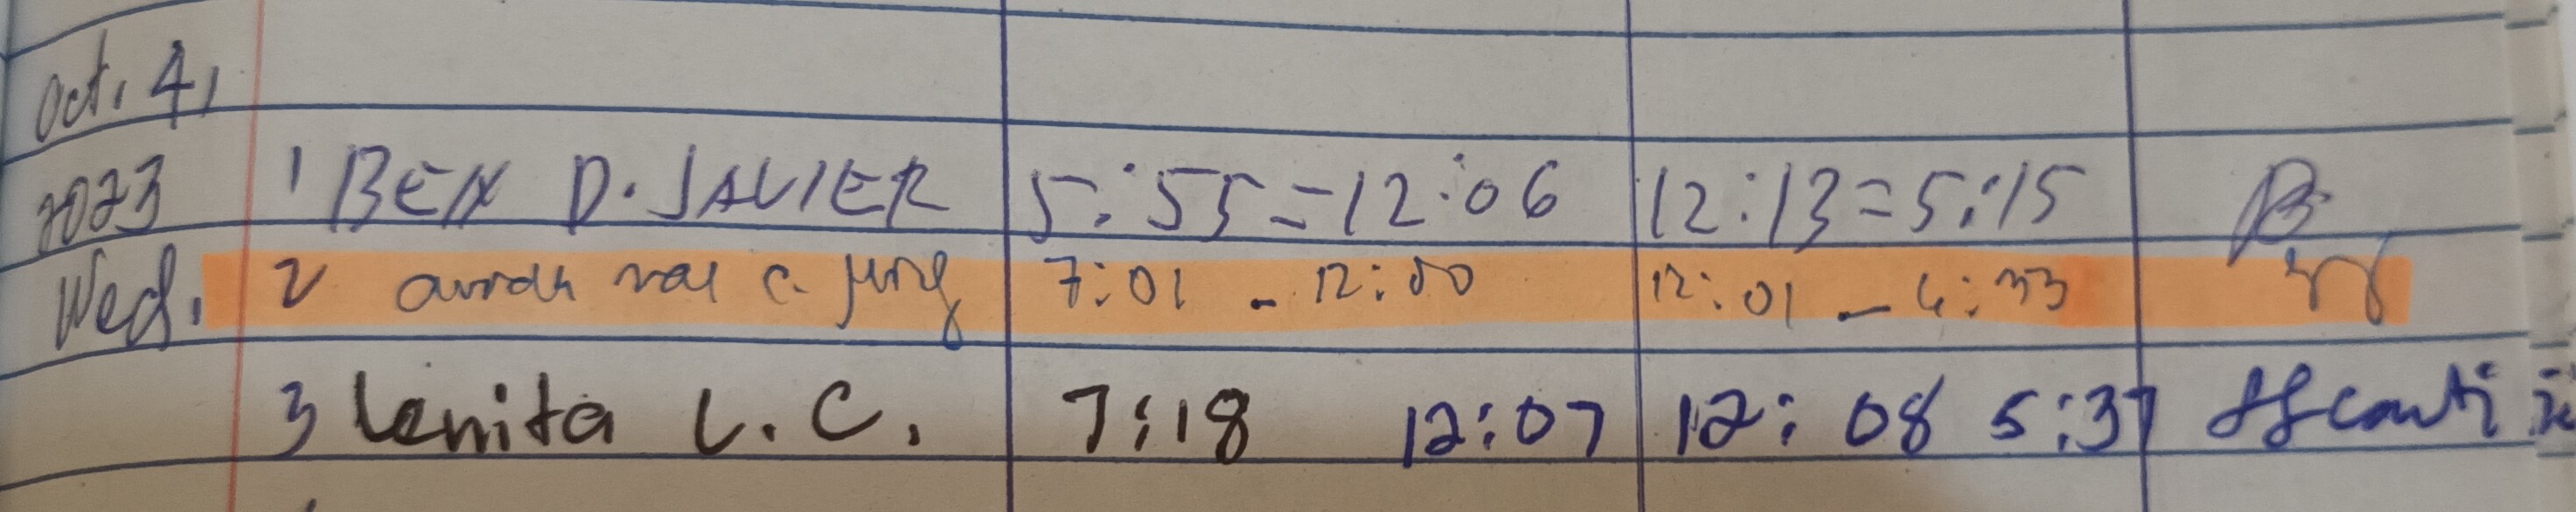 Oct. 4,
2023 1 BEN D. JAVIER 5:55=12:06 12:13=5:15
Wed. 2 c. 7:01 - 12:00 12:01 - 4:33
3 Lenita L.C. 7:18 12:07 12:08 5:37